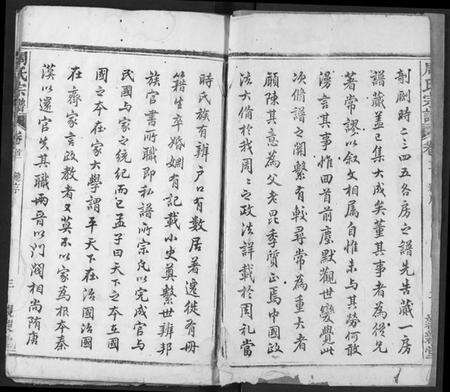 剞劂時二三四五各房之譜先告蕆一房
譜蕆蓋已集大成矣董其事者爲從兄
著常謬以敘文相屬自惟未與其勞何敢
漫言其事惟回首前塵默觀世變覺此
次脩譜之關繫有較尋常爲重大者
願陳其意爲父老昆季質正焉中國政
法大備於我周周之政法詳載於周禮當
時氏族有辨户口有數居著遷徙有冊
籍生卒婚姻有記載小史奠繫世辨邦
族官書所職即私譜所宗凡以完成官與
民國與家之統紀而已孟子曰天下之本在國
國之本在家大學謂平天下在治國治國
在齊家言政教者又莫不以家爲根本秦
漢以還官失其職兩晉以門閥相尚隋唐
周氏宗譜
卷首
三